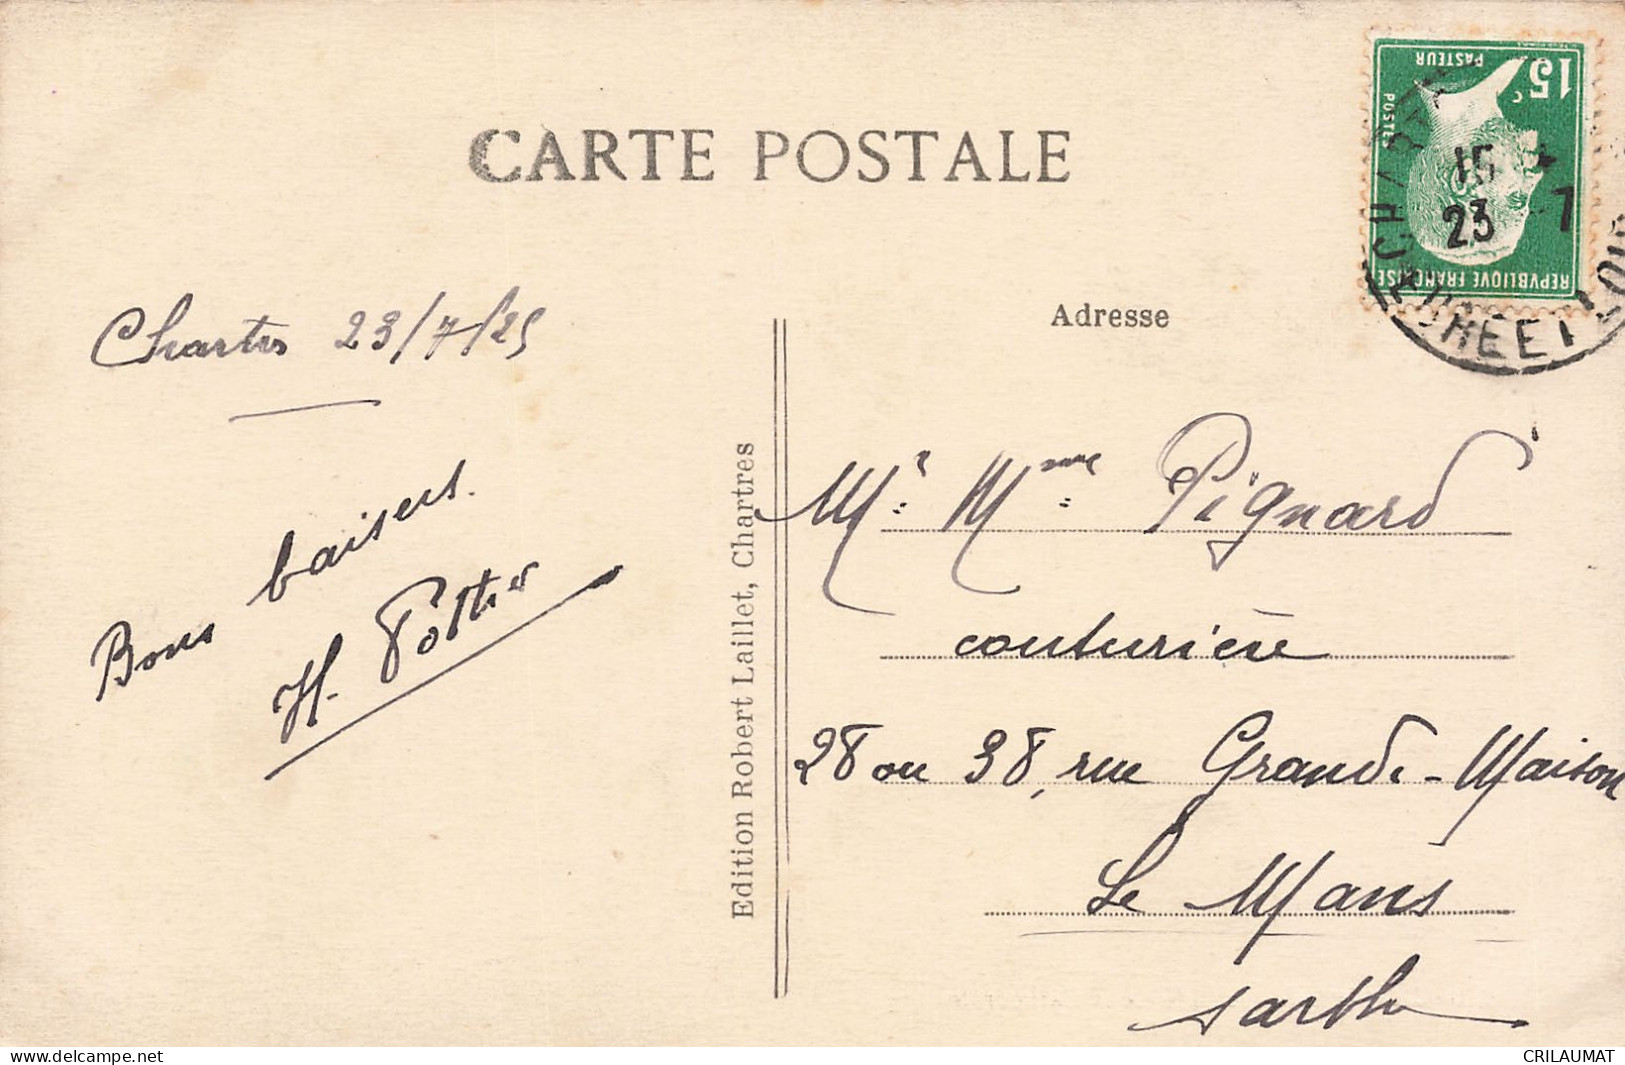 CARTE POSTALE
Chartres 23/7/25
Bons baisers.
H. Pottier
Edition Robert Laillet, Chartres
Adresse
REPVBLIQVE FRANÇAISE
POSTES
PASTEUR
15c
15 *
23 - 7
EURE ET LOIR
Mr. Mme. Pignard
couturière
28 ou 38, rue Grande-Maison
Le Mans
Sarthe
www.delcampe.net
CRILAUMAT